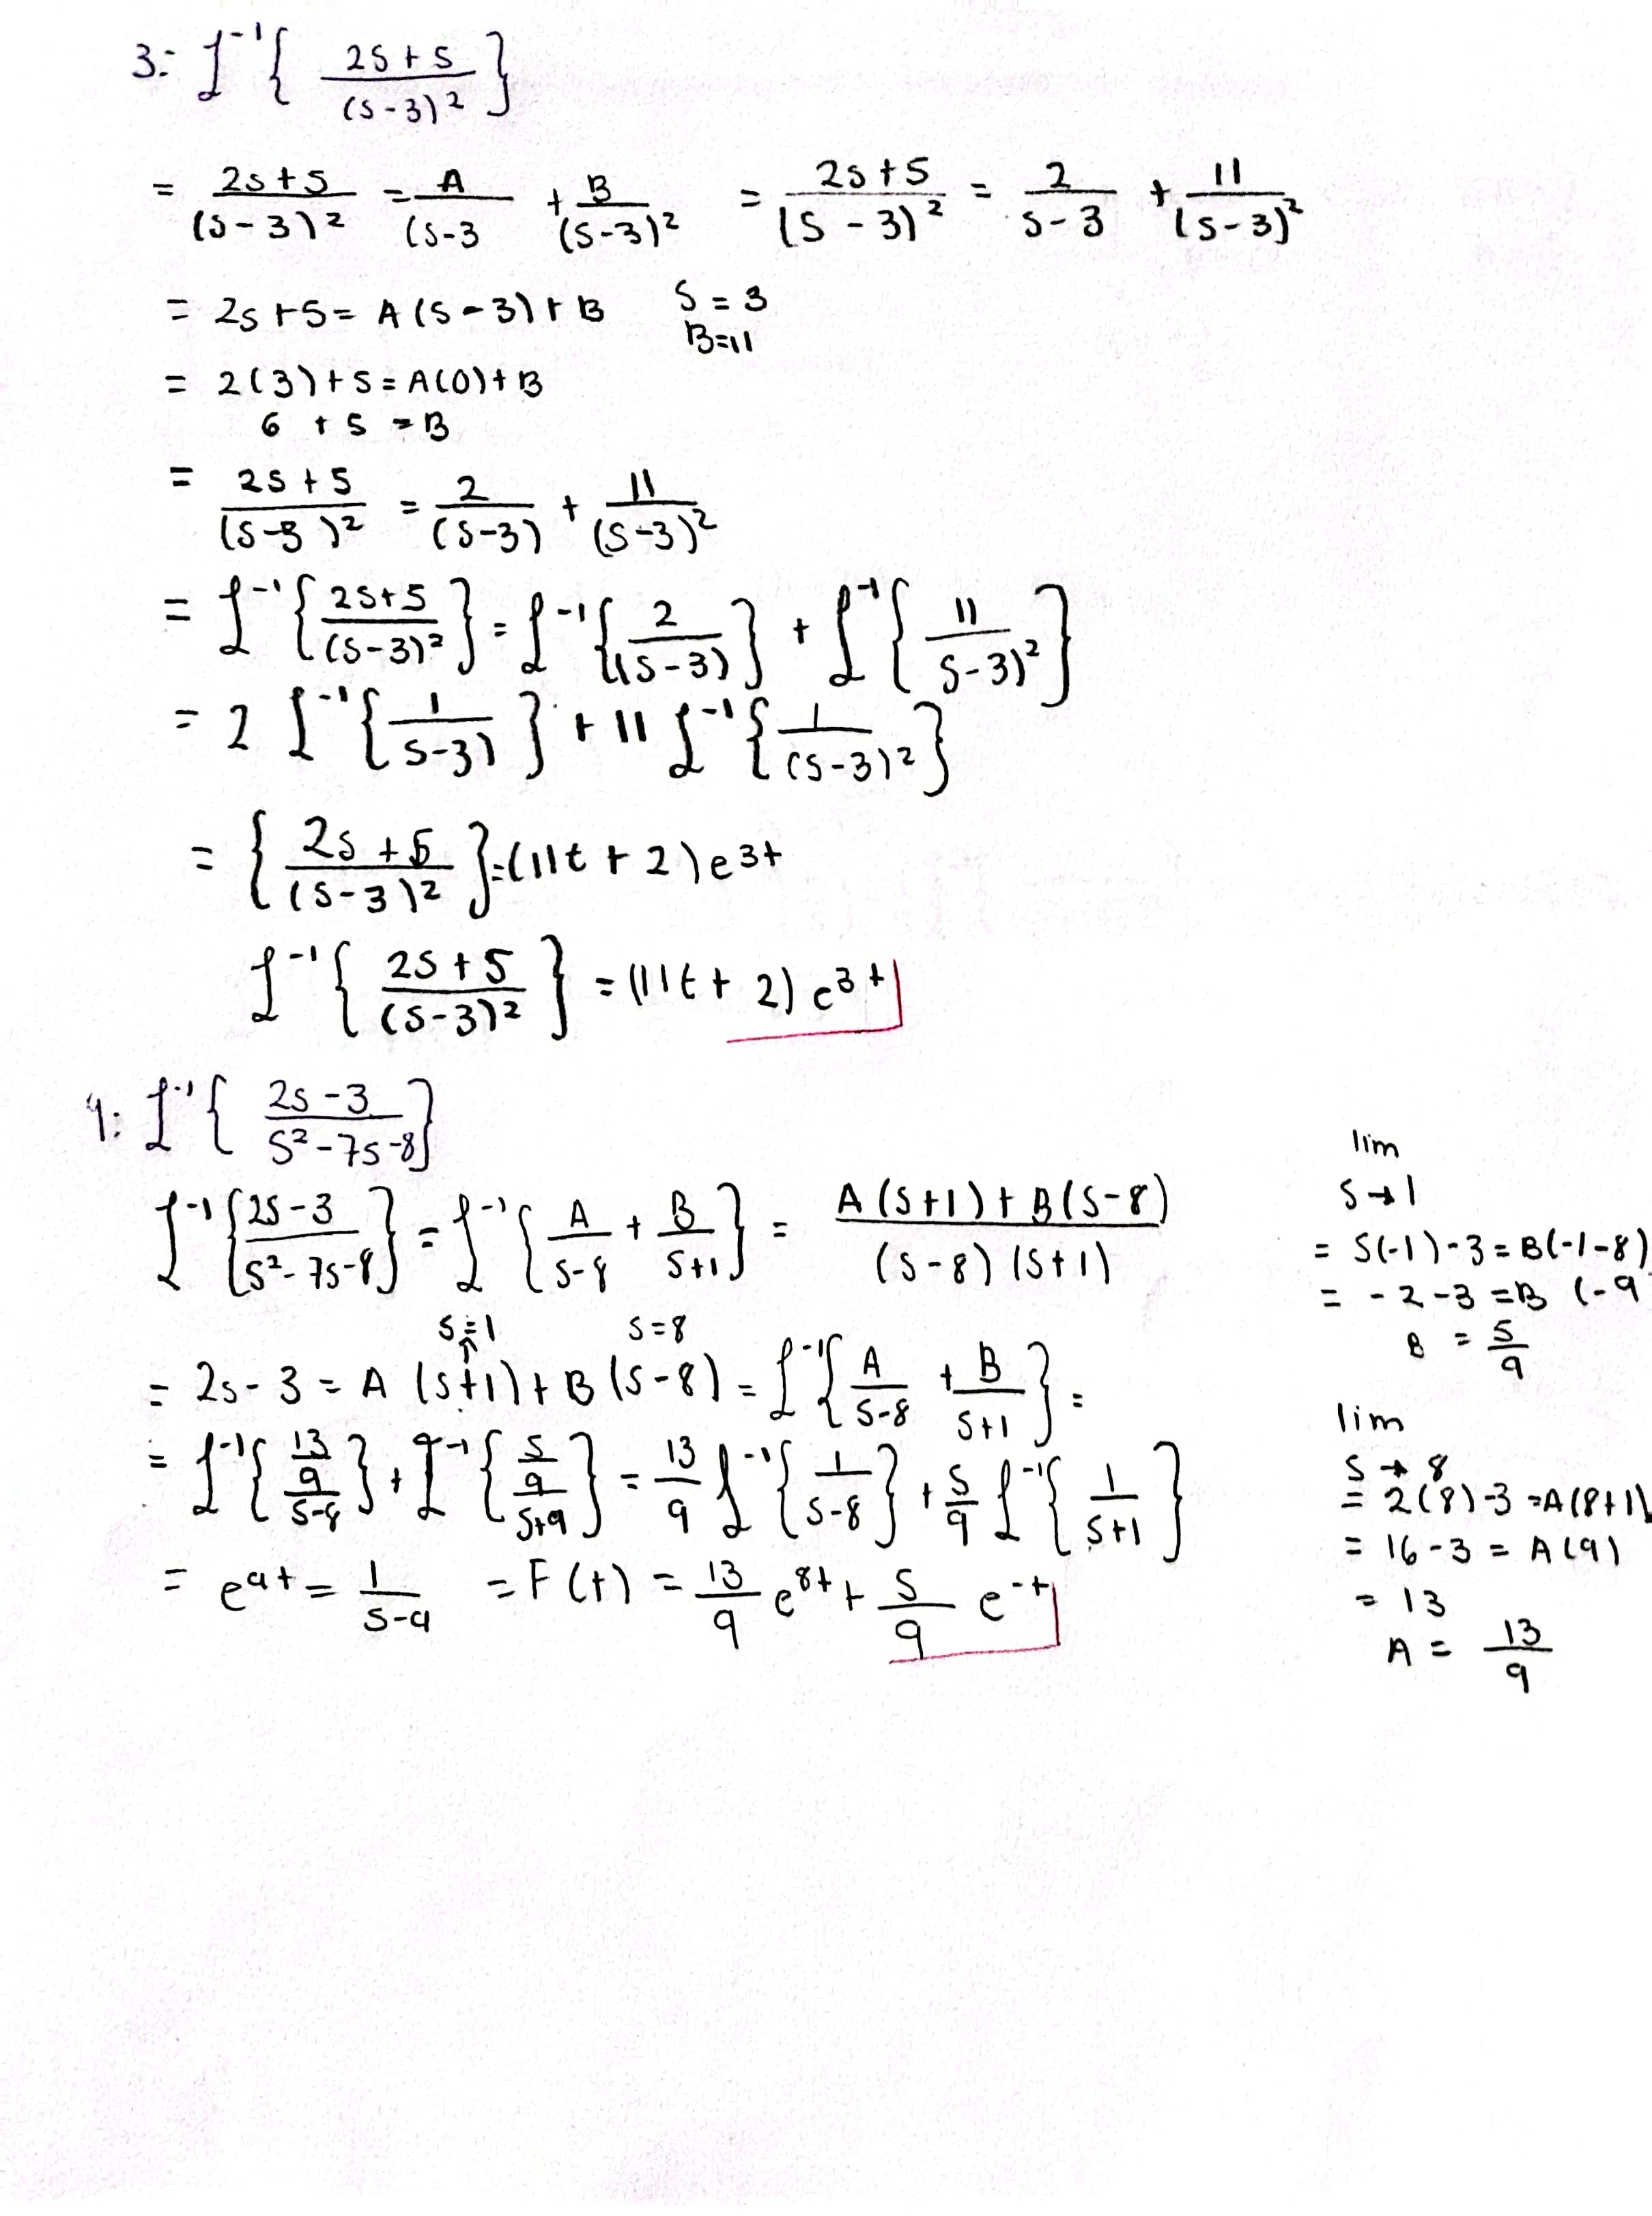 3: ℒ⁻¹{ (2s+5)/(s-3)² }
= (2s+5)/(s-3)² = A/(s-3 + B/(s-3)² = (2s+5)/(s-3)² = 2/(s-3) + 11/(s-3)²
= 2s+5 = A(s-3)+B s=3
B=11
= 2(3)+5 = A(0)+B
6 + 5 = B
= (2s+5)/(s-3)² = 2/(s-3) + 11/(s-3)²
= ℒ⁻¹{ (2s+5)/(s-3)² } = ℒ⁻¹{ 2/(s-3) } + ℒ⁻¹{ 11/s-3)² }
= 2 ℒ⁻¹{ 1/s-3) } + 11 ℒ⁻¹{ 1/(s-3)² }
= { (2s+5)/(s-3)² } = (11t+2)e^3t
ℒ⁻¹{ (2s+5)/(s-3)² } = (11t+2)e^3t
4: ℒ⁻¹{ (2s-3)/(s²-7s-8) }
ℒ⁻¹{ (2s-3)/(s²-7s-8) } = ℒ⁻¹{ A/(s-8) + B/(s+1) } = (A(s+1)+B(s-8))/((s-8)(s+1))
s=1 s=8
= 2s-3 = A(s+1)+B(s-8) = ℒ⁻¹{ A/(s-8) + B/(s+1) } =
= ℒ⁻¹{ (13/9)/(s-8) } + ℒ⁻¹{ (5/9)/(s+9) } = 13/9 ℒ⁻¹{ 1/(s-8) } + 5/9 ℒ⁻¹{ 1/(s+1) }
= e^at = 1/(s-a) = F(t) = 13/9 e^8t + 5/9 e^-t
lim
s→1
= s(-1)-3 = B(-1-8)
= -2-3 = B (-9
B = 5/9
lim
s→8
= 2(8)-3 = A(8+1)
= 16-3 = A(9)
= 13
A = 13/9